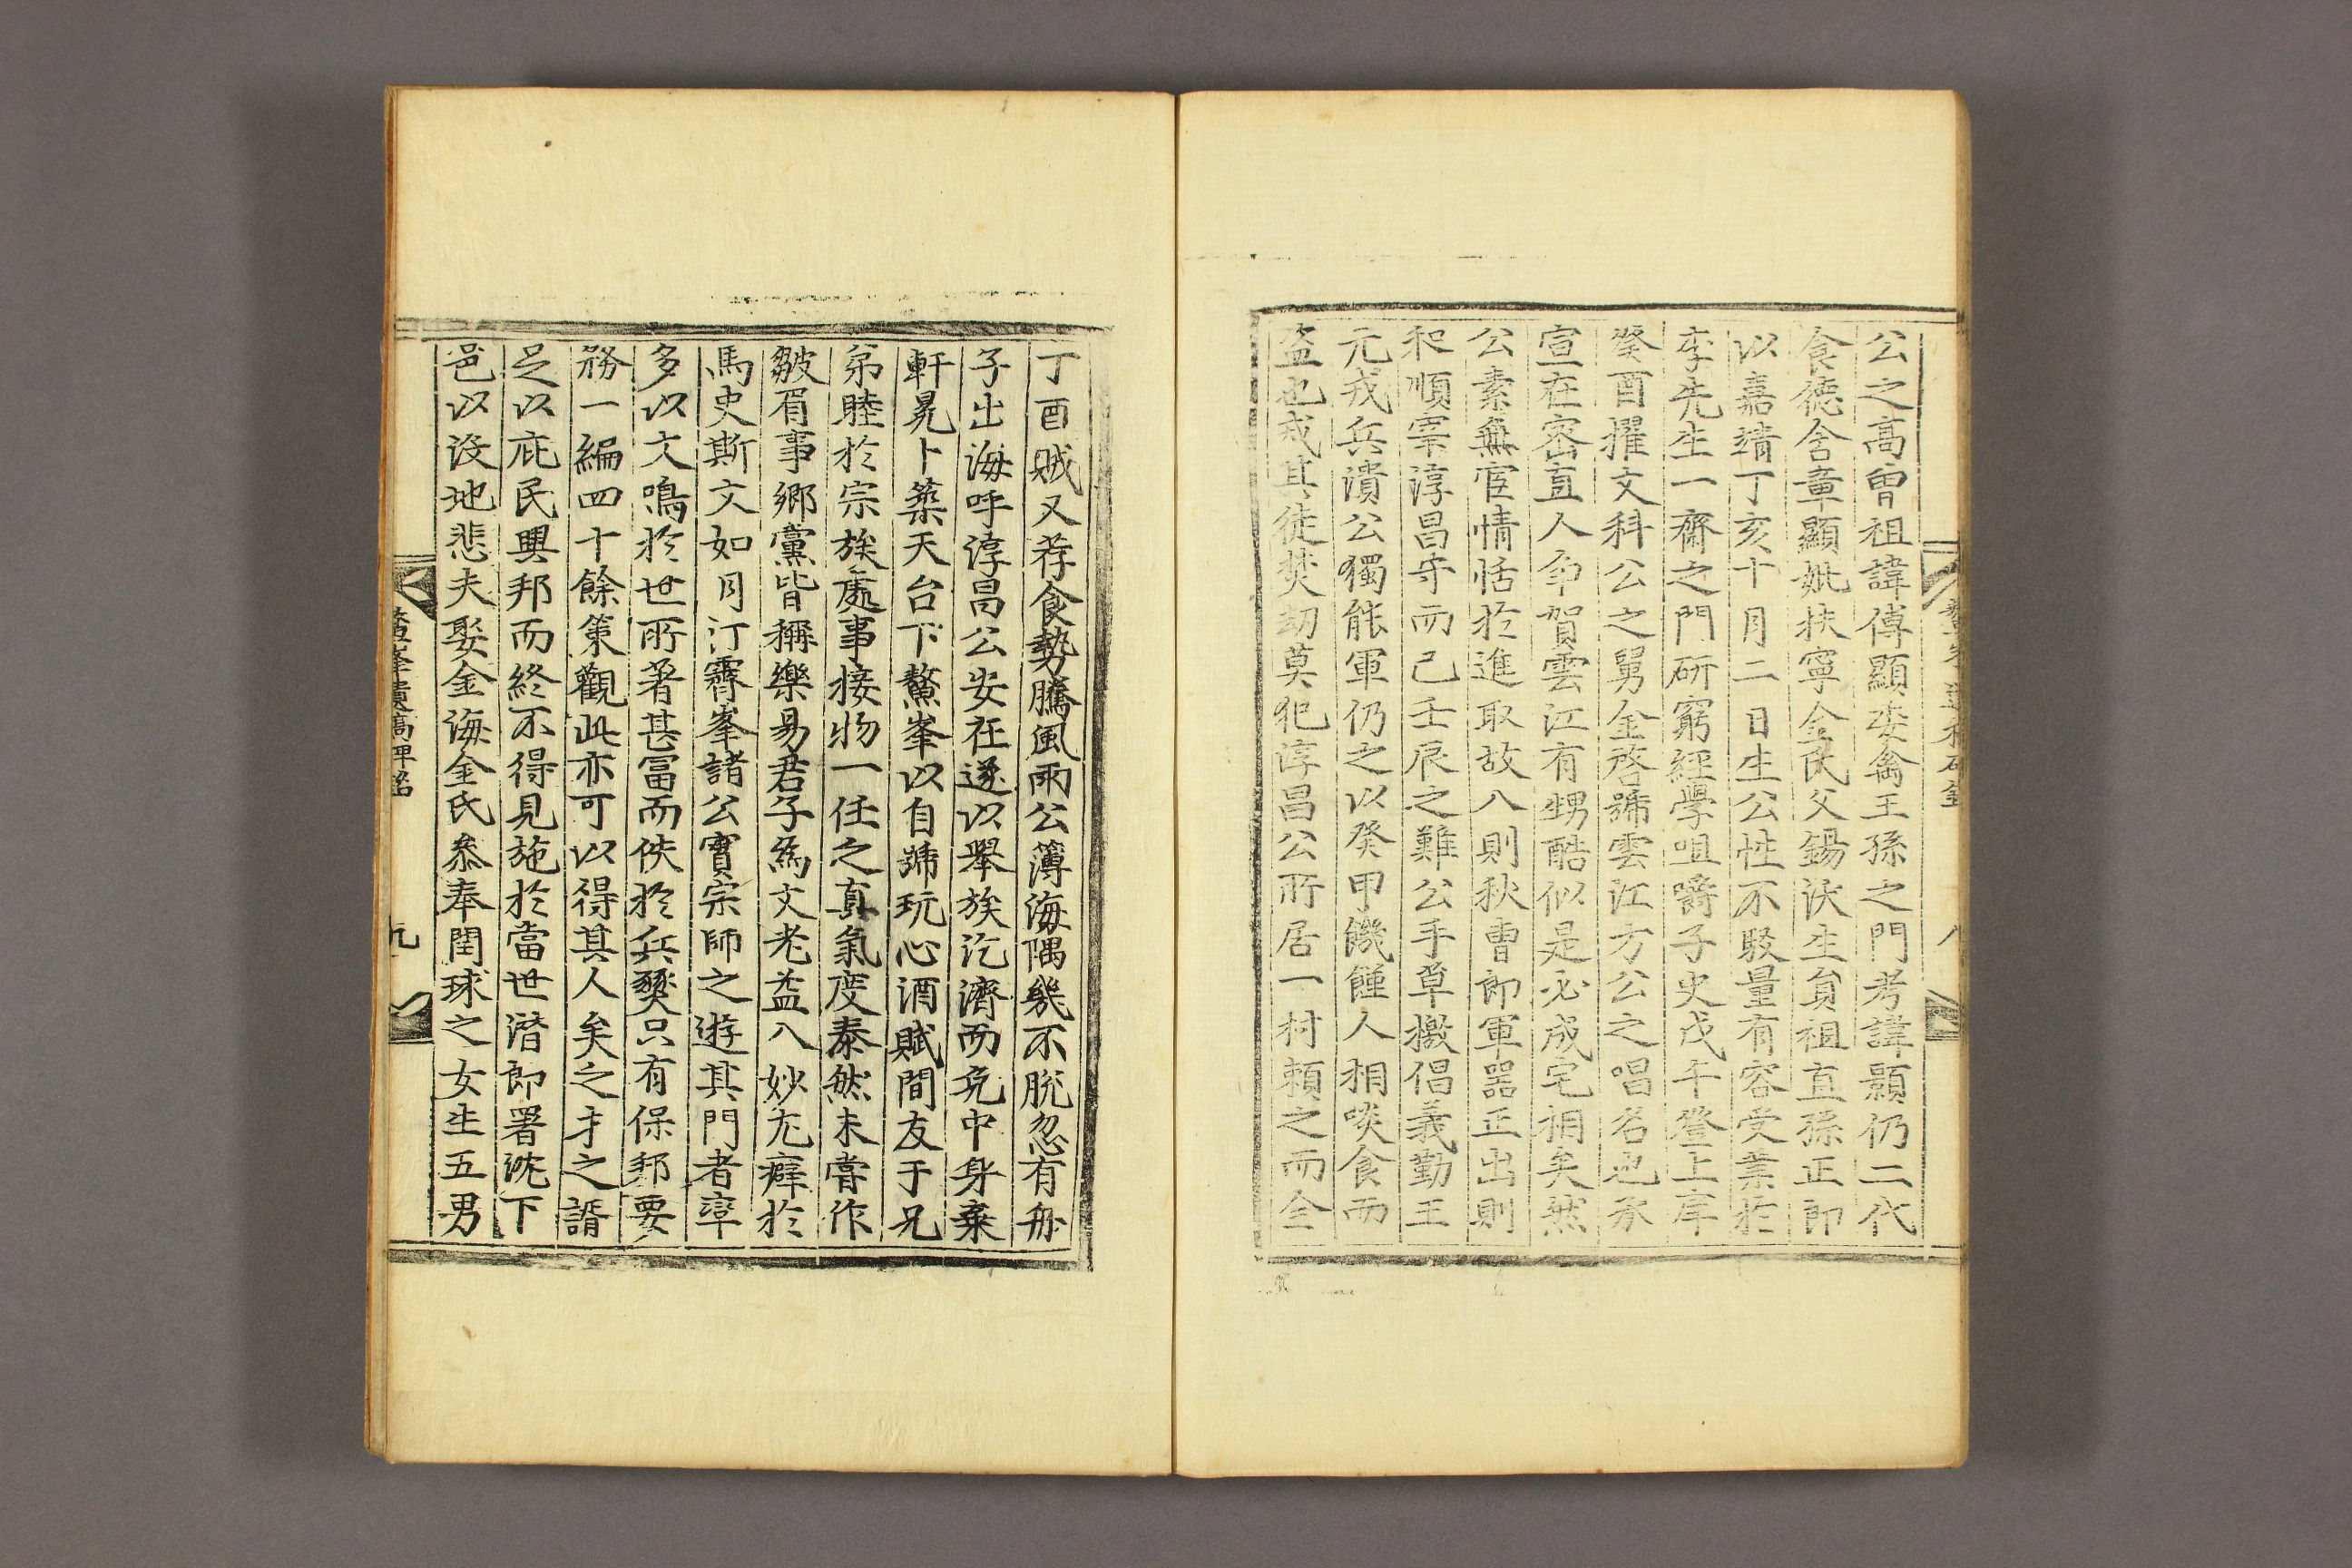 公之高曾祖諱傅顯娄禽王孫之門考諱顥仍二代
食德含章顯妣扶寧金氏父錫沃生負祖直孫正郎
以嘉靖丁亥十月二日生公性不駁量有容受業於
李先生一齋之門硏窮經學咀嚼子史戊午登上庠
癸酉擢文科公之舅金啓號雲江方公之唱名也承
宣在密直人争賀雲江有甥酷似是必成宅相矣然
公素無宦情恬於進取故八則秋曹郞軍噐正出則
和順寀淳昌守而已壬辰之難公手草檄倡義勤王
元戎兵潰公獨能軍仍之以癸甲饑饉人相啖食而
盗也戒其徒焚刧莫犯淳昌公所居一村頼之而全
鰲峯遺稿碑銘
八
丁酉賊又荐食勢騰風雨公簿海隅幾不脫忽有舟
子出海呼淳昌公安在遂以舉族汔濟而免中身棄
軒冕卜築天台下鰲峯以自號玩心酒賦間友于兄
弟睦於宗族處事接物一任之眞氣度泰然未嘗作
皺眉事鄉黨皆稱樂易君子爲文老益八妙尤癖於
馬史斯文如月汀霽峯諸公實宗師之遊其門者率
多以文鳴於世所著甚富而佚於兵燹只有保邦要
務一編四十餘策觀此亦可以得其人矣之才之諝
足以庇民興邦而終不得見施於當世潛郞署沈下
邑以沒地悲夫娶金海金氏叅奉閏球之女生五男
鰲峯遺稿碑銘
九